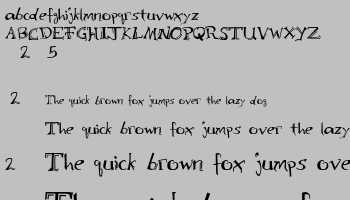 abcdefghijklmnopqrstuvwxyz
ABCDEFGHIJKLMNOPQRSTUVWXYZ
2 5
2 The quick brown fox jumps over the lazy dog
The quick brown fox jumps over the lazy
2 The quick brown fox jumps ove